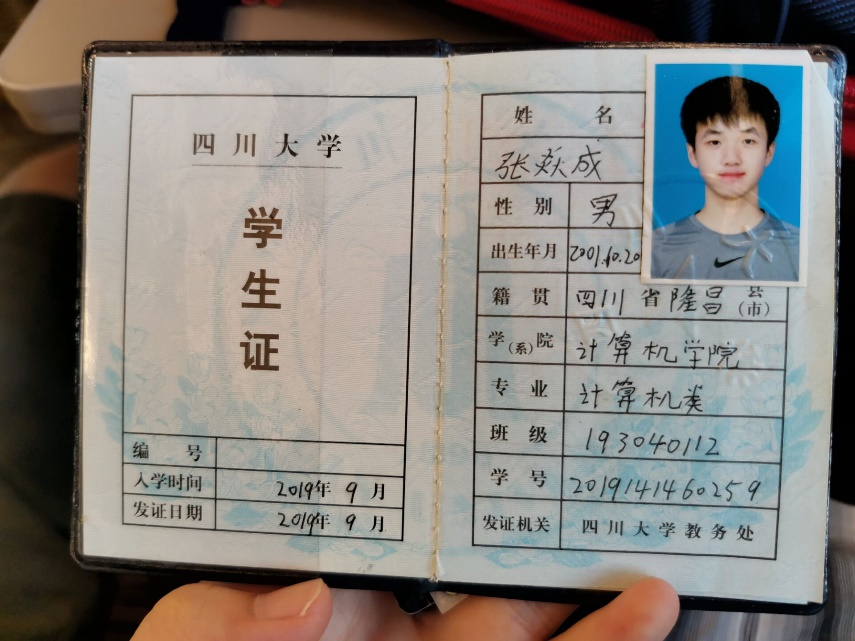 四川大学
学生证
编号
入学时间 2019年 9 月
发证日期 2019年 9 月
姓名
张焱成
性别 男
出生年月 2001.10.20
籍贯 四川省隆昌县(市)
学(系)院 计算机学院
专业 计算机类
班级 193040112
学号 2019141460259
发证机关 四川大学教务处